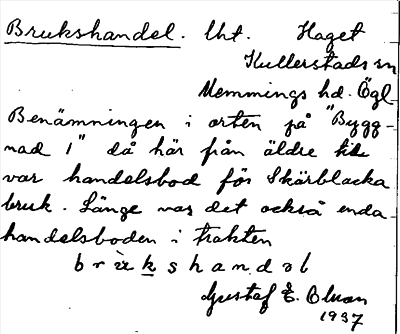 Brukshandel. Uht. Haget
Kullerstads sn
Memmings hd. Ögl.
Benämningen i orten på "Bygg-
nad 1" då här från äldre tid
var handelsbod för Skärblacka
bruk. Länge var det också enda
handelsboden i trakten
Gustaf E.
1937